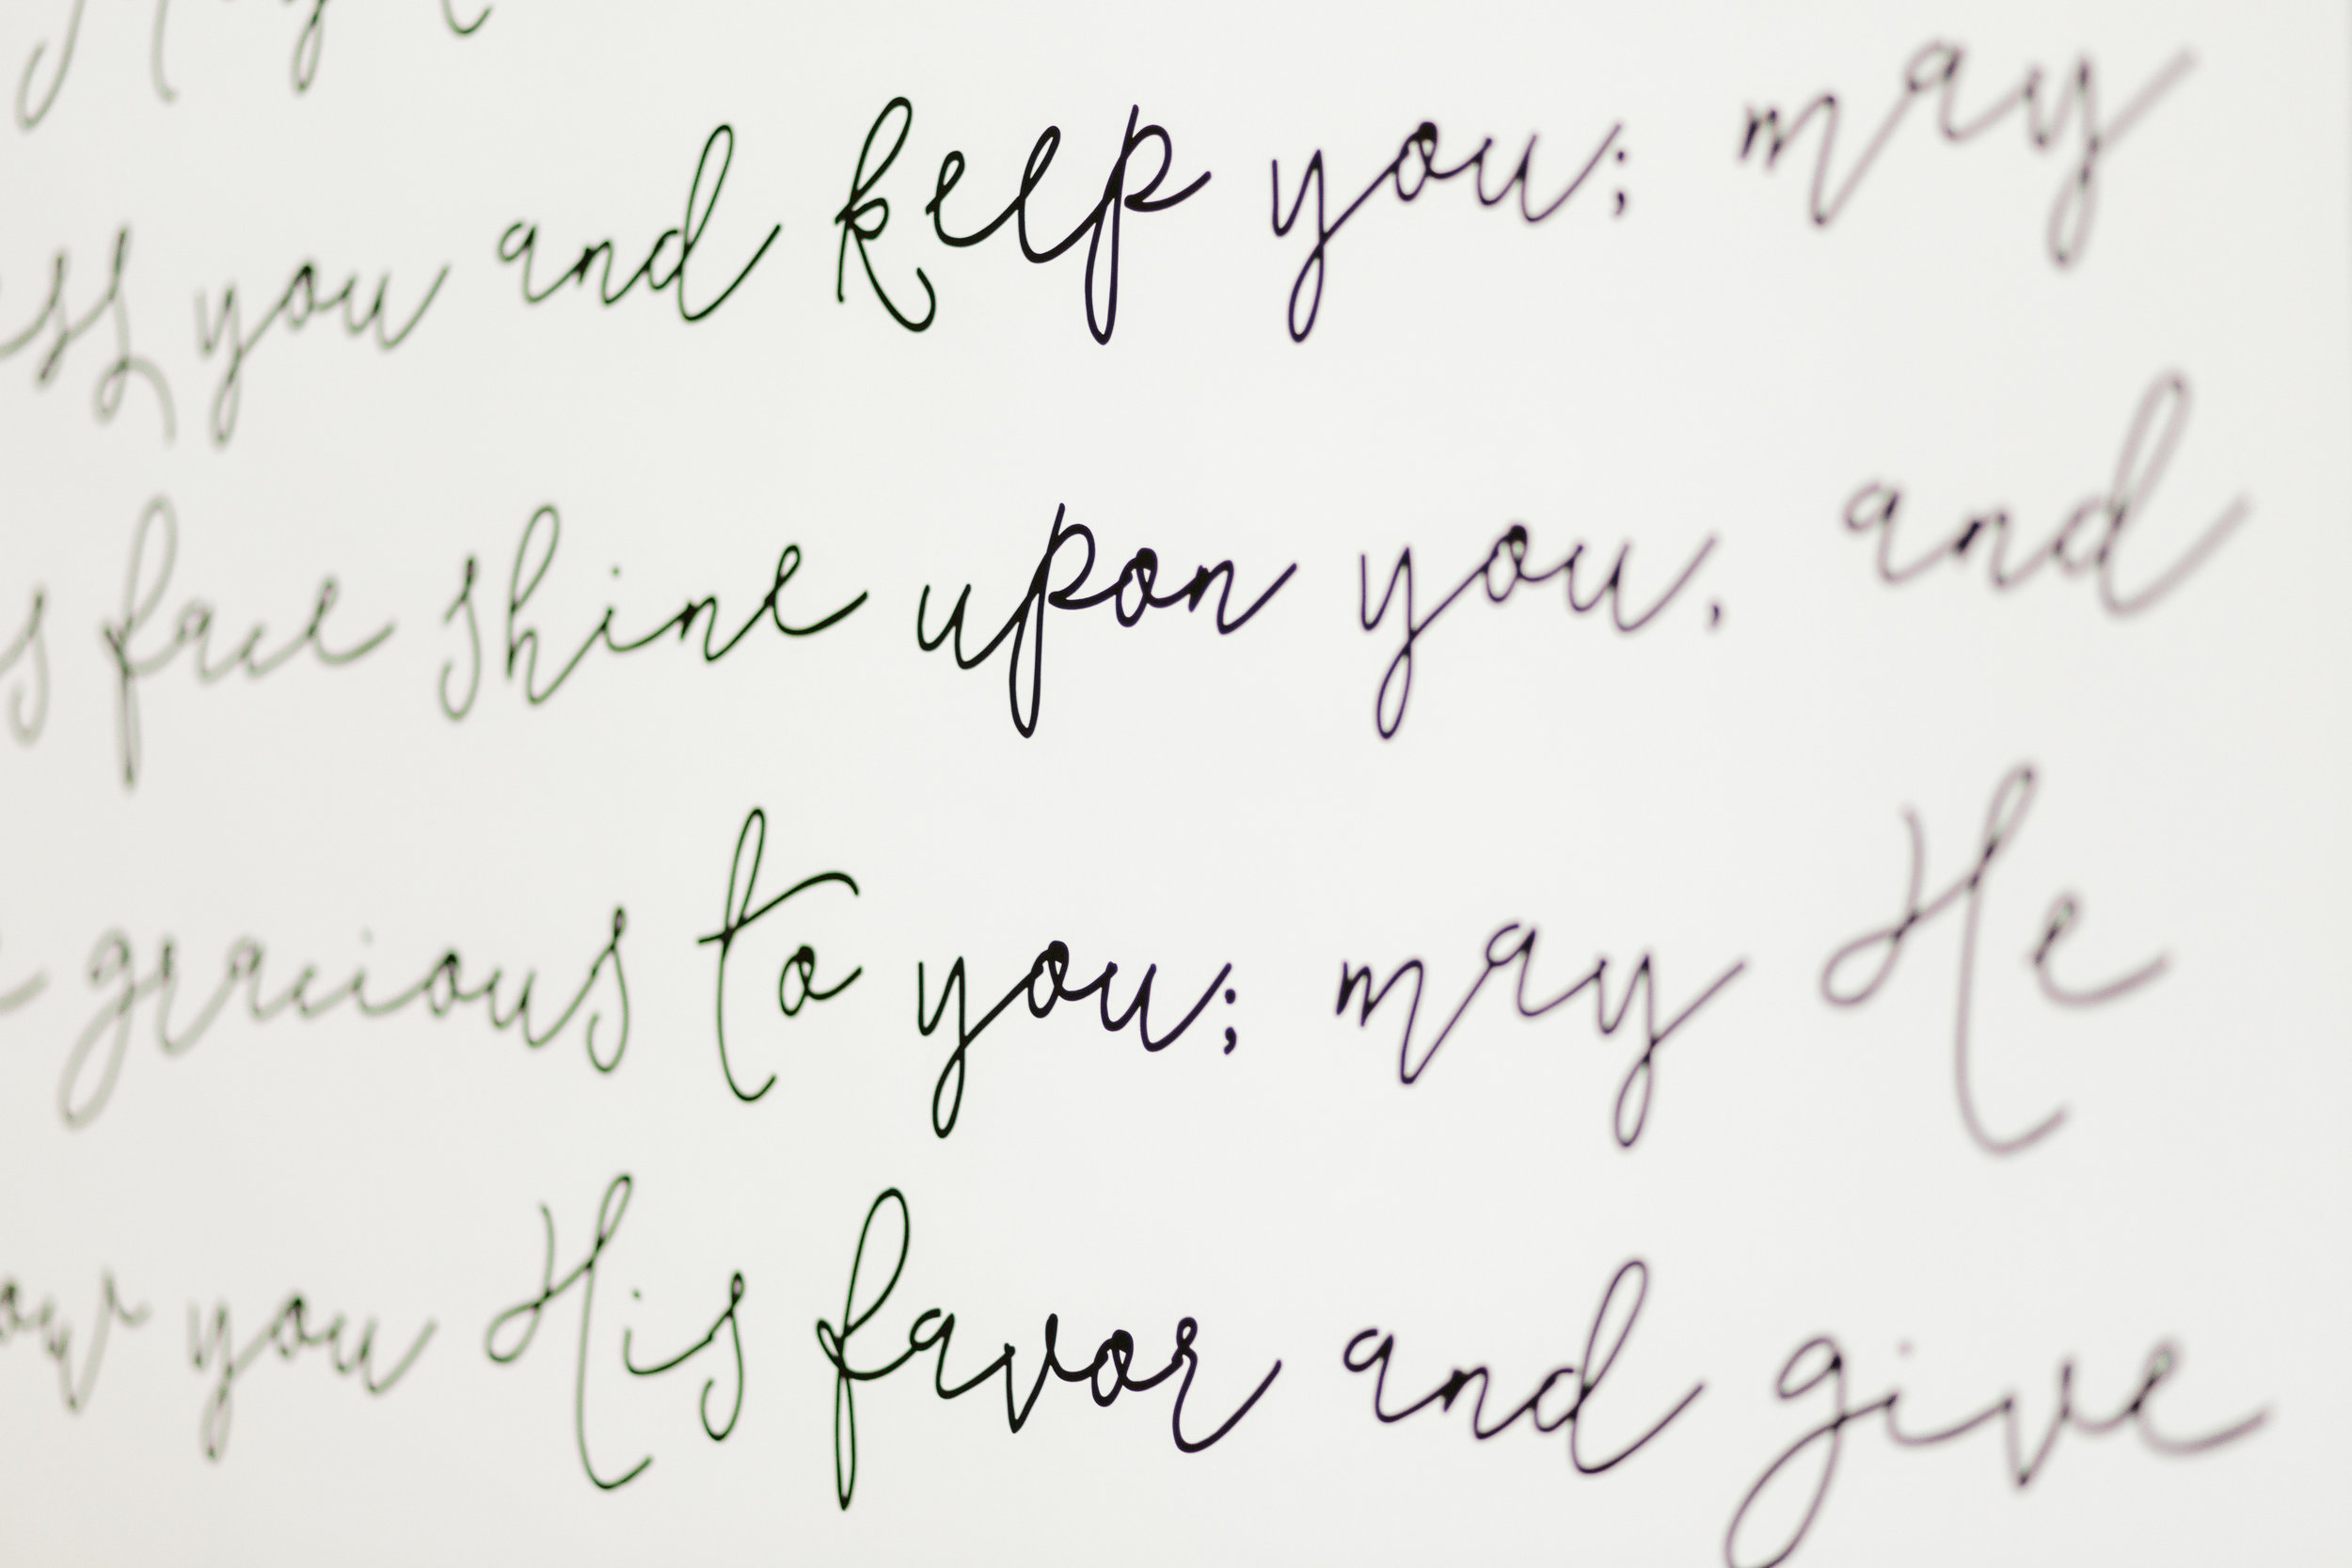 you and keep you; may
face shine upon you, and
gracious to you; may He
you His favor and give